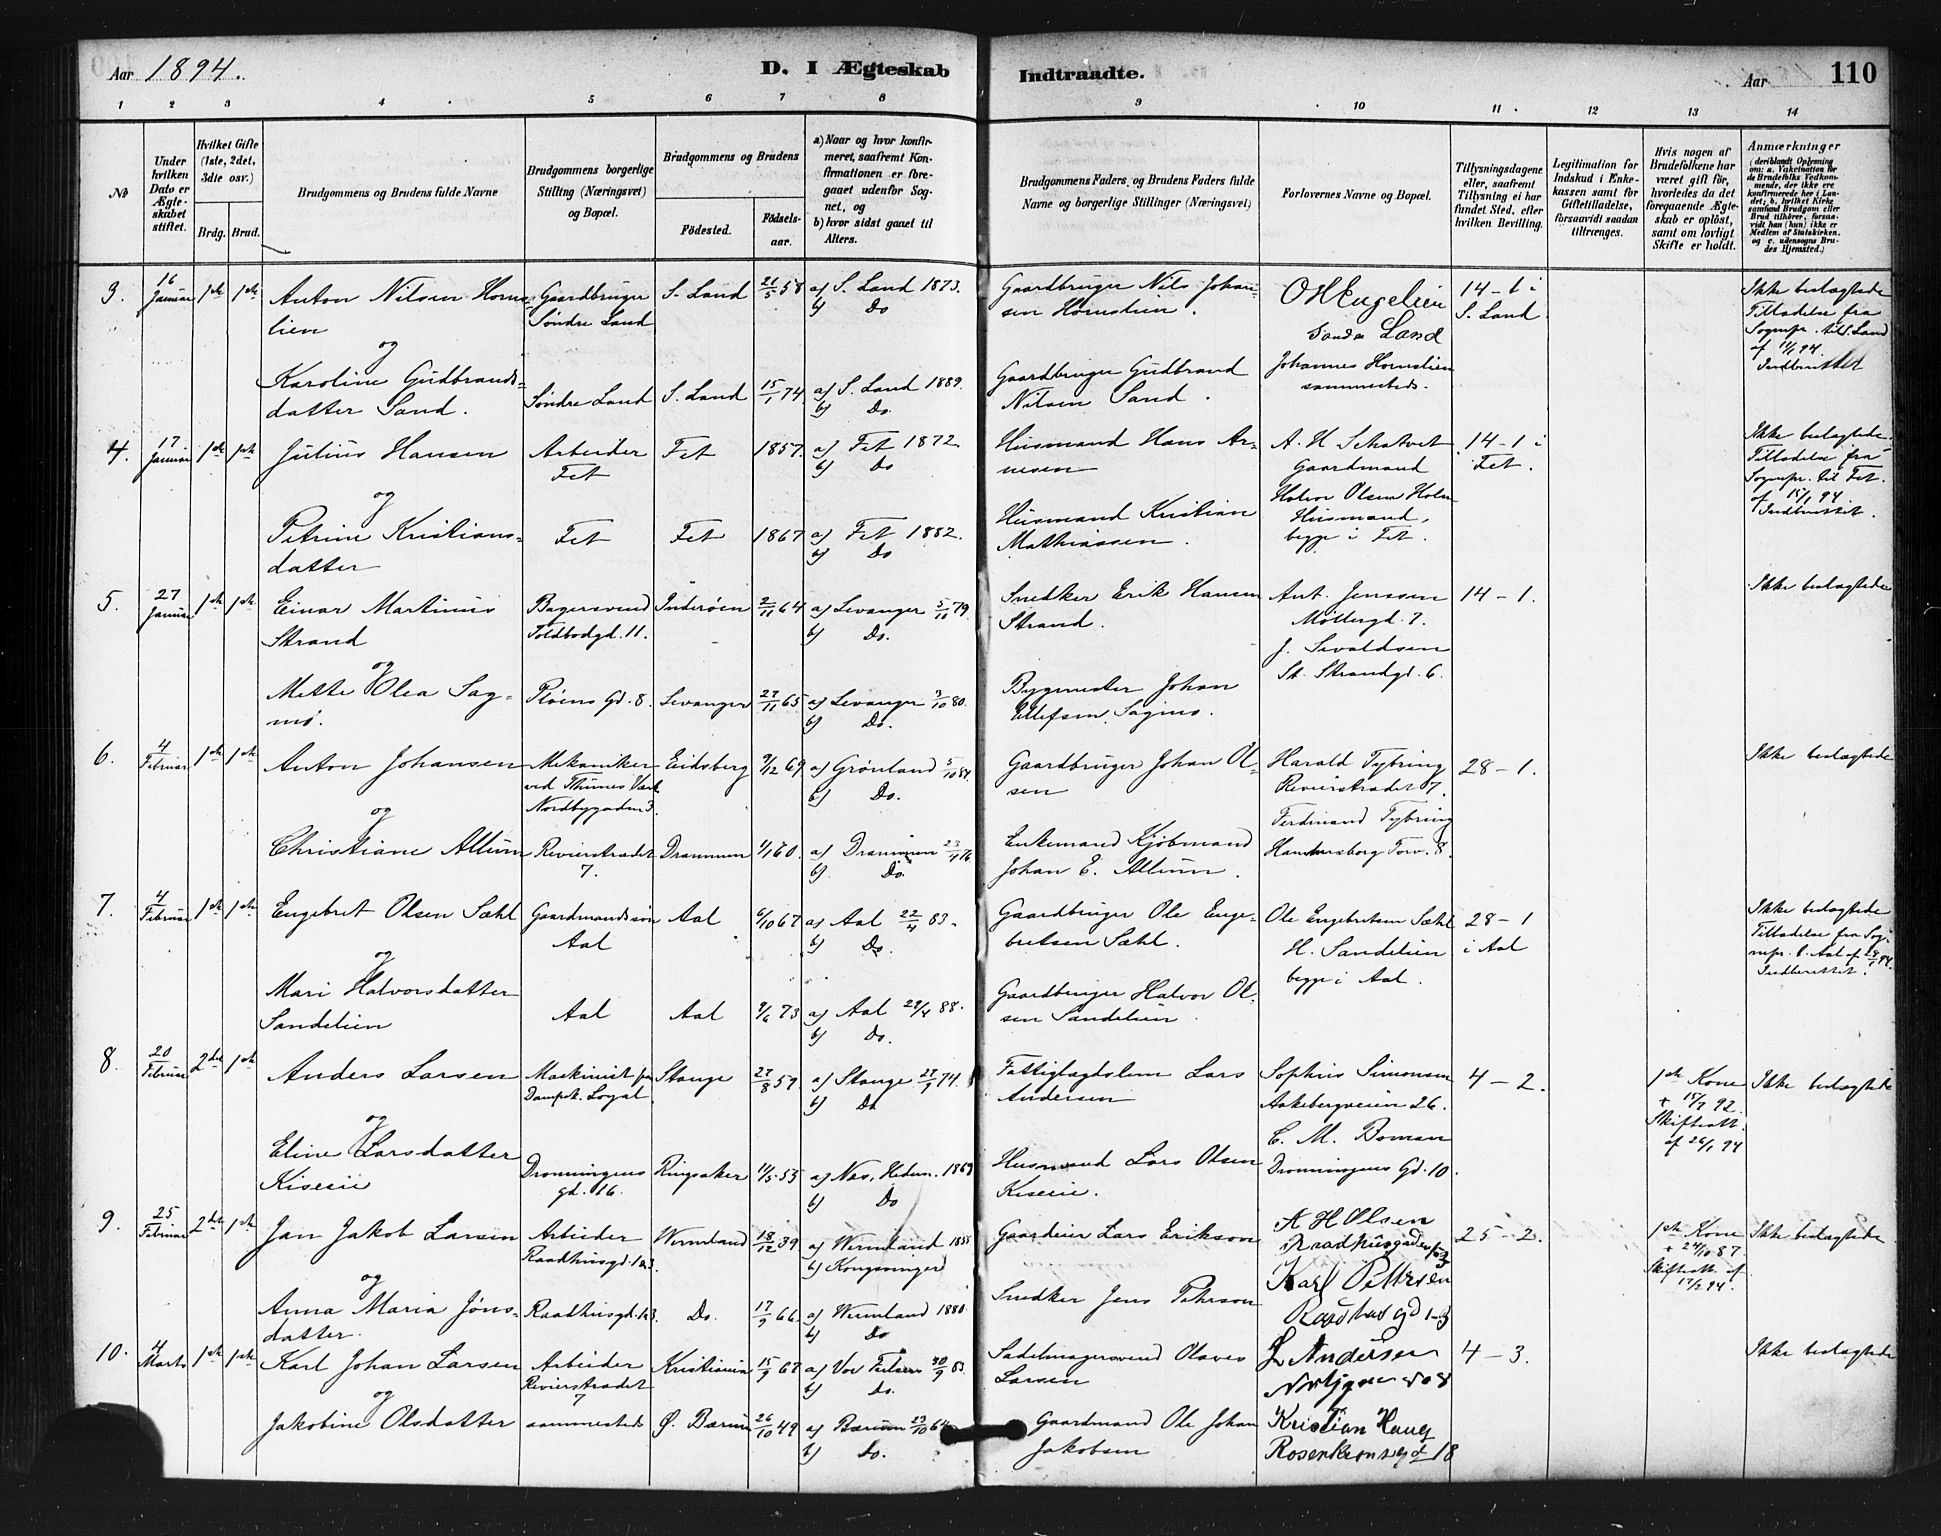 Aar 1894.
D. I Ægteskab Indtraadte.
Aar 110
1 2 3 4 5 6 7 8 9 10 11 12 13 14
No
Under hvilken Dato er Ægteskabet stiftet.
Hvilket Gifte (1ste, 2det, 3die osv.)
Brdg. Brud.
Brudgommens og Brudens fulde Navne
Brudgommens borgerlige Stilling (Næringsvei) og Bopæl.
Brudgommens og Brudens
Fødested.
Fødselsaar.
a) Naar og hvor konfirmeret, saafremt Konfirmationen er foregaaet udenfor Sognet, og
b) hvor sidst gaaet til Alters.
Brudgommens Faders og Brudens Faders fulde Navne og borgerlige Stillinger (Næringsvei)
Forlovernes Navne og Bopæl.
Tillysningsdagene eller, saafremt Tillysning ei har fundet Sted, efter hvilken Bevilling.
Legitimation for Indskud i Enkekassen samt for Giftetilladelse, forsaavidt saadan tiltrænges.
Hvis nogen af Brudefolkene har været gift før, hvorledes da det foregaaende Ægteskab er opløst, samt om lovligt Skifte er holdt.
Anmærkninger
(deriblandt Oplysning om: a. Vakcination for de Brudefolks Vedkommende, der ikke ere konfirmerede her i Landet; b. hvilket Kirkesamfund Brudgom eller Brud tilhører, forsaavidt han (hun) ikke er Medlem af Statskirken, og c. udensogns Brudes Hjemsted.)
3. 16 Januar 1ste 1ste Anton Nilsen Hornslien Gaardbruger Søndre Land S. Land 21/5 58 a) S. Land 1873. b) Do Gaardbruger Nils Johansen Hornslien. O H Engelien Søndre Land 14-1 i S. Land Ikke beslægtede Tilladelse fra Sognepr. til S. Land af 11/1 94. Indberettet
og
Karoline Gudbrandsdatter Sand. Søndre Land S. Land 15/1 74 a) S. Land 1889. b) Do. Gaardbruger Gudbrand Nilsen Sand. Johannes Hornslien sammesteds.
4. 17 Januar 1ste 1ste Julius Hansen Arbeider Fet Fet 1857. a) Fet 1872 b) Do Husmand Hans Arnesen A. H. Schatvet Gaardmand 14-1 i Fet. Ikke beslægtede. Tilladelse fra Sognepr. til Fet. af 15/1 94. Indberettet.
og
Petrine Kristiansdatter Fet Fet 1867 a) Fet 1882. b) Do Husmand Kristian Mathiassen. Halvor Olsen Holm Husmand, begge i Fet.
5. 27 Januar 1ste 1ste Einar Martinus Strand Bagersvend Toldbodgd. 11. Inderøen 2/11 64 a) Levanger 5/10 79. b) Do. Snedker Erik Hansen Strand. Ant. Jenssen Møllergd. 7. 14-1. Ikke beslægtede
og
Mette Olea Sagmo. Pløens Gd. 8. Levanger 27/11 65 a) Levanger 3/10 80. b) Do. Bygmester Johan Ellefsen Sagmo. J. Sivaldsen St. Strandgd. 6.
6. 4 Februar 1ste 1ste Anton Johansen Mekaniker ved Thunes Værk Nordbygaden 3. Eidsberg 9/12 69 a) Grønland 5/10 84. b) Do. Gaardbruger Johan Olsen Harald Tybring Revierstrædet 7. 28-1. Ikke beslægtede
og
Christiane Allum Revierstrædet 7. Drammen 1/1 60. a) Drammen 23/4 76 b) Do. Enkemand Kjøbmand Johan E. Allum. Ferdinand Tybring Hammersborg Torv. 8.
7. 4 Februar 1ste 1ste Engebret Olsen Sæhl Gaardmandssøn Aal Aal 6/10 67 a) Aal 22/4 83. b) Do. Gaardbruger Ole Engebretsen Sæhl. Ole Engebretsen Sæhl 28-1 i Aal Ikke beslægtede Tilladelse fra Sognepr. t. Aal af 29/1 94. Indberettet.
og
Mari Halvorsdatter Sandelien Aal Aal 9/6 73 a) Aal 29/4 88. b) Do. Gaardbruger Halvor Olsen Sandelien. H. Sandelien begge i Aal.
8. 20 Februar 2det 1ste Anders Larsen Maskinist paa Dampsk. Loyal. Stange 27/8 57 a) Stange 27/9 74. b) Do Fattiglagdslem Lars Andersen Sophus Simonsen Aakebergveien 26. 4-2. 1ste Kone + 15/7 92. Skifteatt. af 26/1 94 Ikke beslægtede
og
Eline Larsdatter Dronningens gd. 16. Ringsaker 11/5 53 a) Næs, Hedem. 1869 b) Do Husmand Lars Olsen C. M. Boman Dronningens Gd. 10.
9. 25 Februar 2det 1ste Jan Jakob Larsen Arbeider Raadhusgd. 1 a 3. Wermland 18/12 39 a) Wermland 1855 b) Kongsvinger Gaardeier Lars Erikson A H Olsen Raadhusgaden 25-2. 1ste Kone + 24/10 87 Skifteatt. af 17/2 94. Ikke beslægtede
og
Anna Maria Jönsdatter. Raadhusgd. 1 a 3. Do. 17/9 66. a) Wermland 1880. b) Do Snedker Jens Pehrson Karl Pettersen Raadhus gd 1-3
10. 4 Marts 1ste 1ste Karl Johan Larsen Arbeider Revierstrædet 7 Kristiania 15/9 67 a) Vor Frelsers 30/9 83. b) Do. Sadelmagersvend Olaves Larsen L Andersen 4-3. Ikke beslægtede
og
Jakobine Olsdatter sammesteds Ø. Bærum 26/10 49 a) Bærum 23/10 64 b) Do. Gaardmand Ole Johan Jakobsen Kristian Haug Rosenkrants gd 18